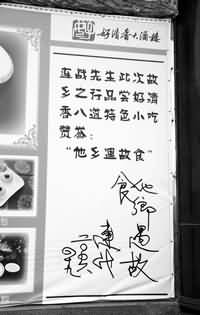 好清香大酒楼
连战先生此次故
乡之行品尝好清
香八道特色小吃
赞誉：
“他乡遇故食”
他乡遇故
食
连战